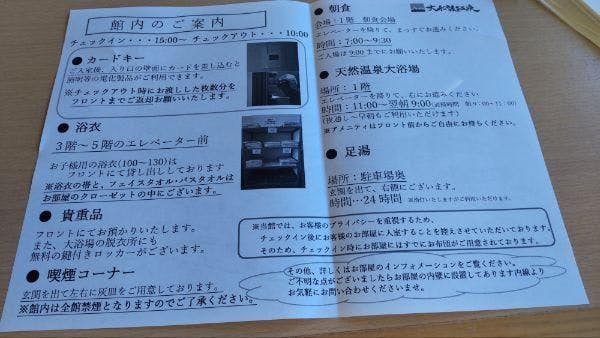 館内のご案内
チェックイン・・・15:00～ チェックアウト・・・10:00
● カードキー
ご入室後、入り口の壁面にカードを差し込むと
照明等の電化製品がご利用できます。
※チェックアウト時にお渡しした枚数分を
フロントまでご返却お願いいたします。
● 浴衣
3階～5階のエレベーター前
お子様用の浴衣(100～130)は
フロントにて貸し出ししております
※浴衣の帯と、フェイスタオル・バスタオルは
お部屋のクローゼットの中にございます。
● 貴重品
フロントにてお預かりいたします。
また、大浴場の脱衣所にも
無料の鍵付きロッカーがございます。
● 喫煙コーナー
玄関を出て左右に灰皿をご用意しております。
※館内は全館禁煙となりますのでご了承ください。
● 朝食
会場:1階 朝食会場
エレベーターを降りて、まっすぐお進みください。
時間:7:00～9:30
ご入場は9:00までにお願いいたします。
● 天然温泉大浴場
場所:1階
エレベーターを降りて、右にお進みください
時間:11:00～翌朝9:00
(夜通し～早朝もご利用いただけます)
※アメニティはフロント前からご自由にお持ちください。
● 足湯
場所:駐車場奥
玄関を出て、右側にございます。
時間…24時間
※当館では、お客様のプライバシーを重視するため、
チェックイン後にお客様のお部屋に入室することを控えさせていただいております。
そのため、チェックイン時にお部屋にはすでにお布団がご用意されております。
その他、詳しくはお部屋のインフォメーションをご覧ください。
ご不明な点がございましたらお部屋の内壁に設置してあります内線より
お気軽にお問い合わせくださいませ。